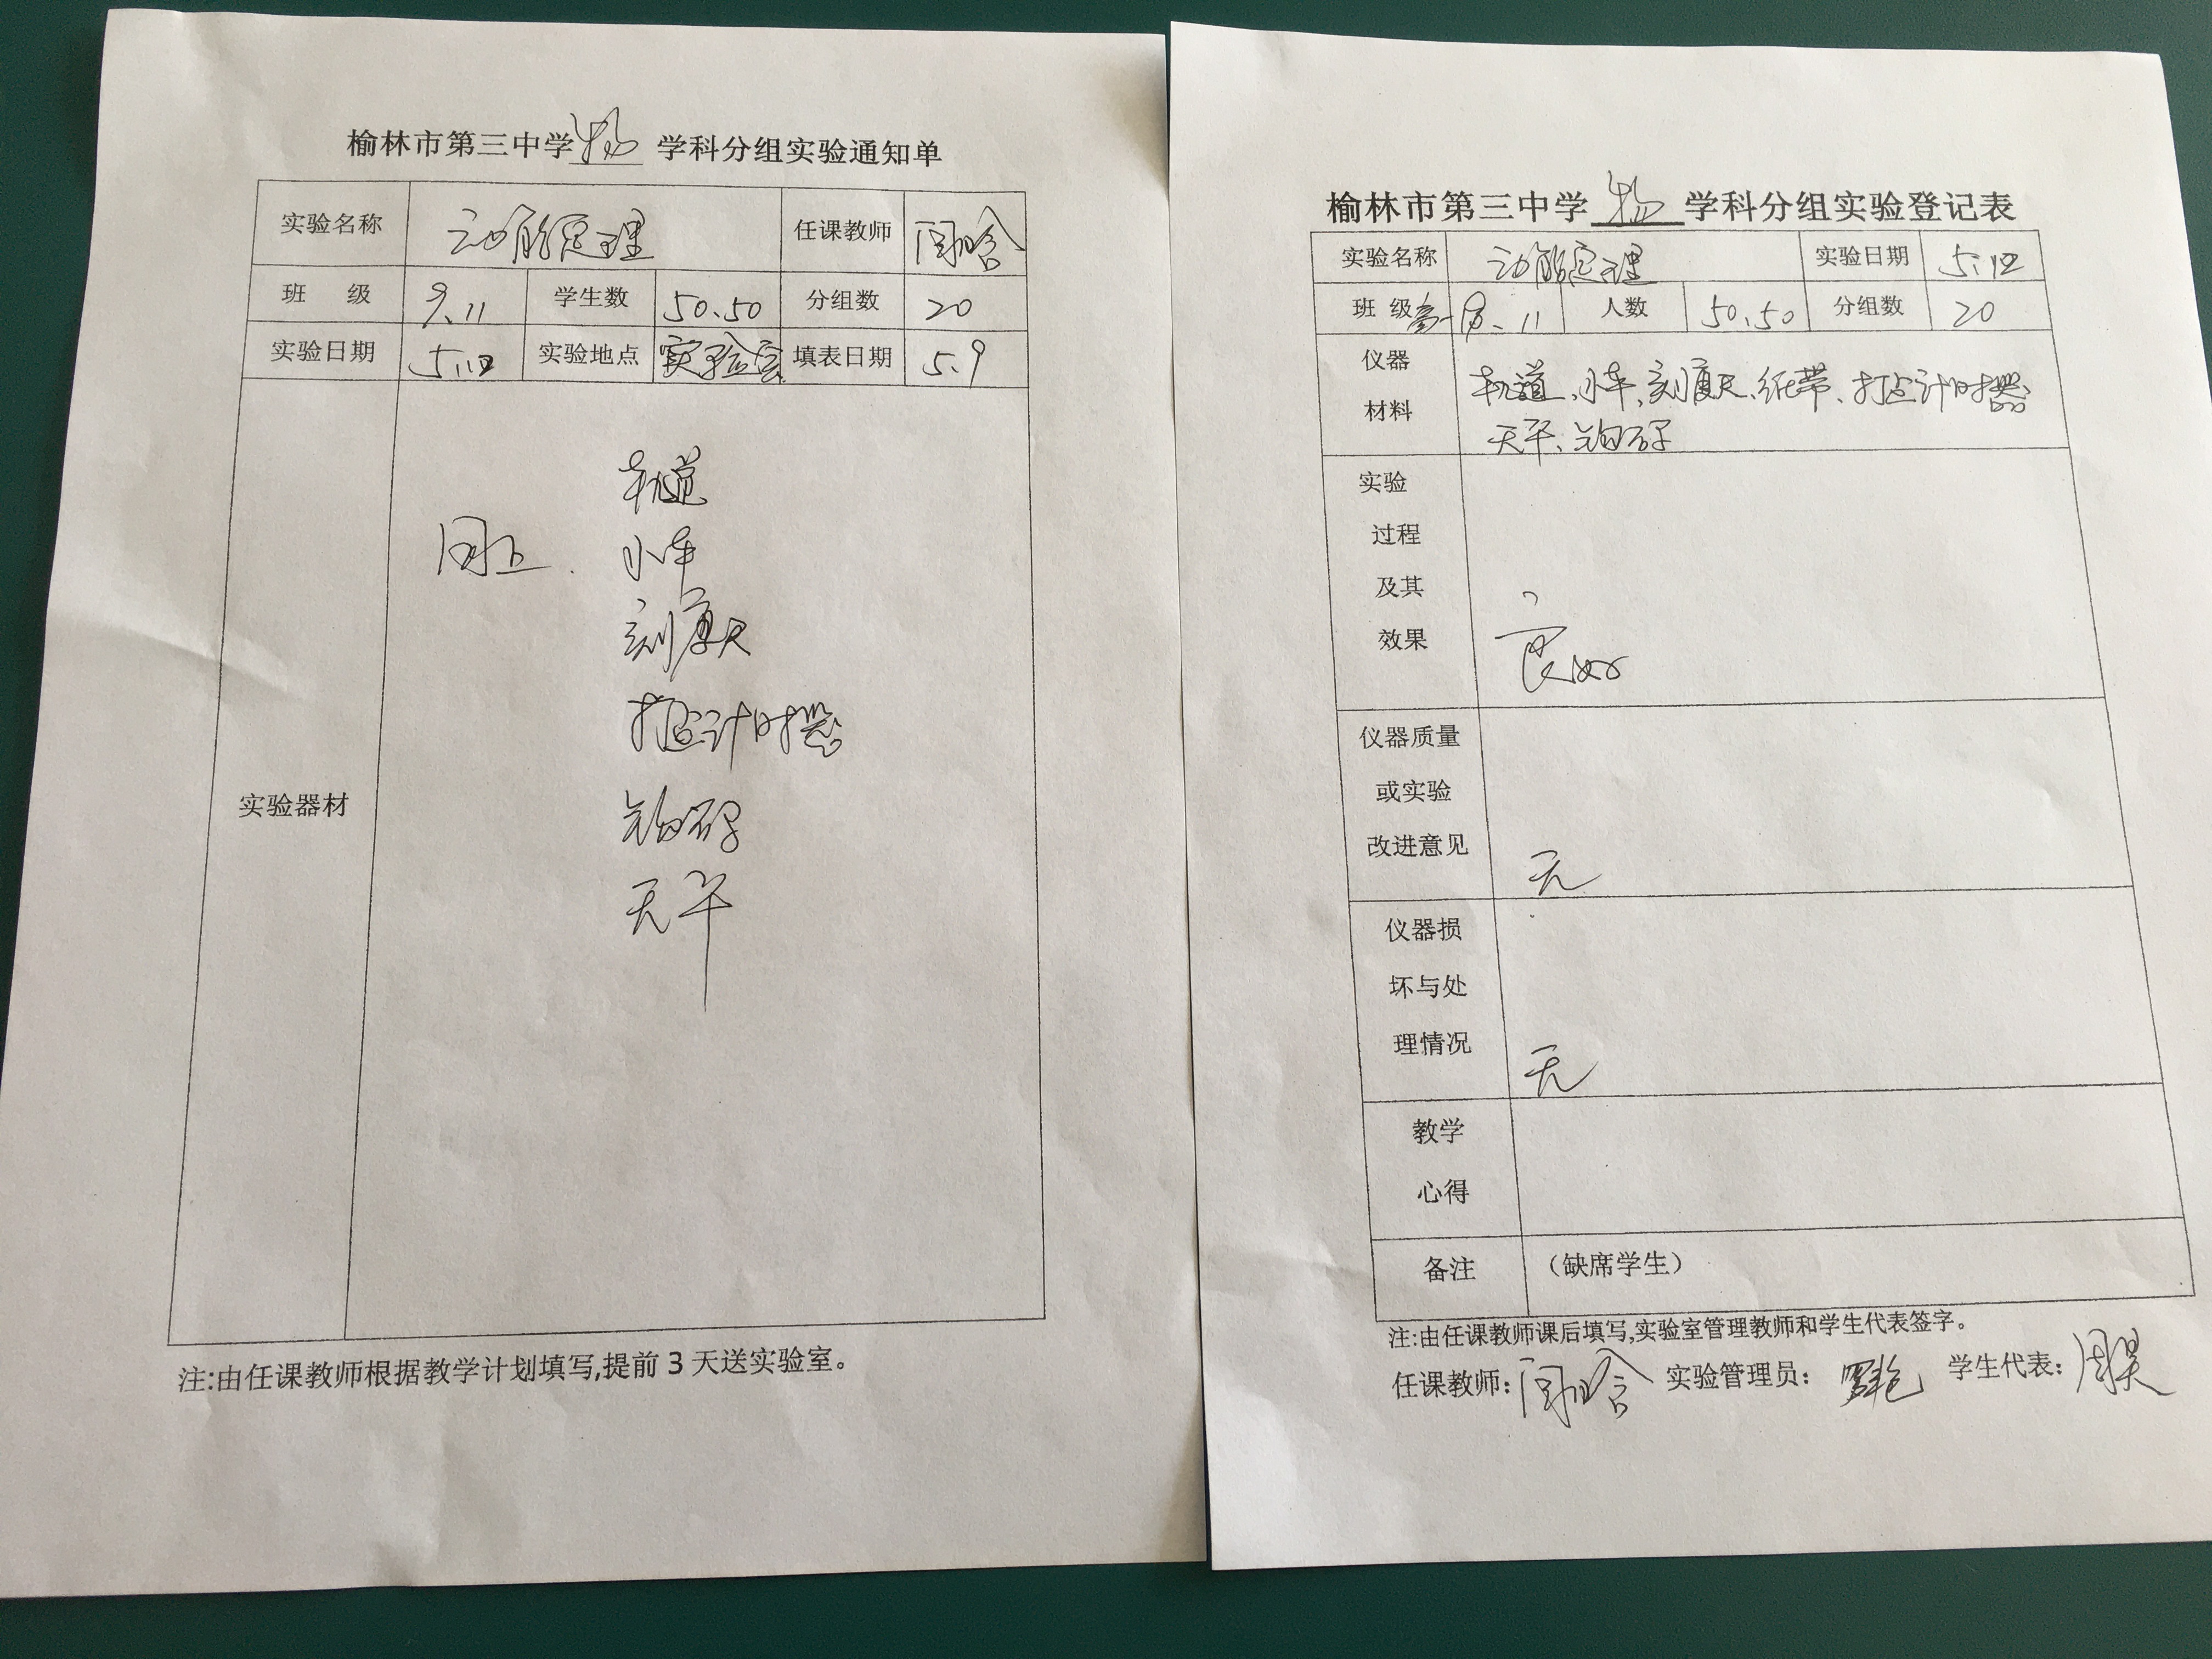 榆林市第三中学 物 学科分组实验通知单
实验名称 动能定理 任课教师
班 级 9、11 学生数 50、50 分组数 20
实验日期 5.12 实验地点 实验室 填表日期 5.9
实验器材
同上.
轨道
小车
刻度尺
打点计时器
钩码
天平
注:由任课教师根据教学计划填写,提前 3 天送实验室。
榆林市第三中学 物 学科分组实验登记表
实验名称 动能定理 实验日期 5.12
班 级 高一 9、11 人数 50、50 分组数 20
仪器
材料
轨道、小车、刻度尺、纸带、打点计时器
天平、钩码
实验
过程
及其
效果
良好
仪器质量
或实验
改进意见
无
仪器损
坏与处
理情况
无
教学
心得
备注 （缺席学生）
注:由任课教师课后填写,实验室管理教师和学生代表签字。
任课教师: 实验管理员: 学生代表: